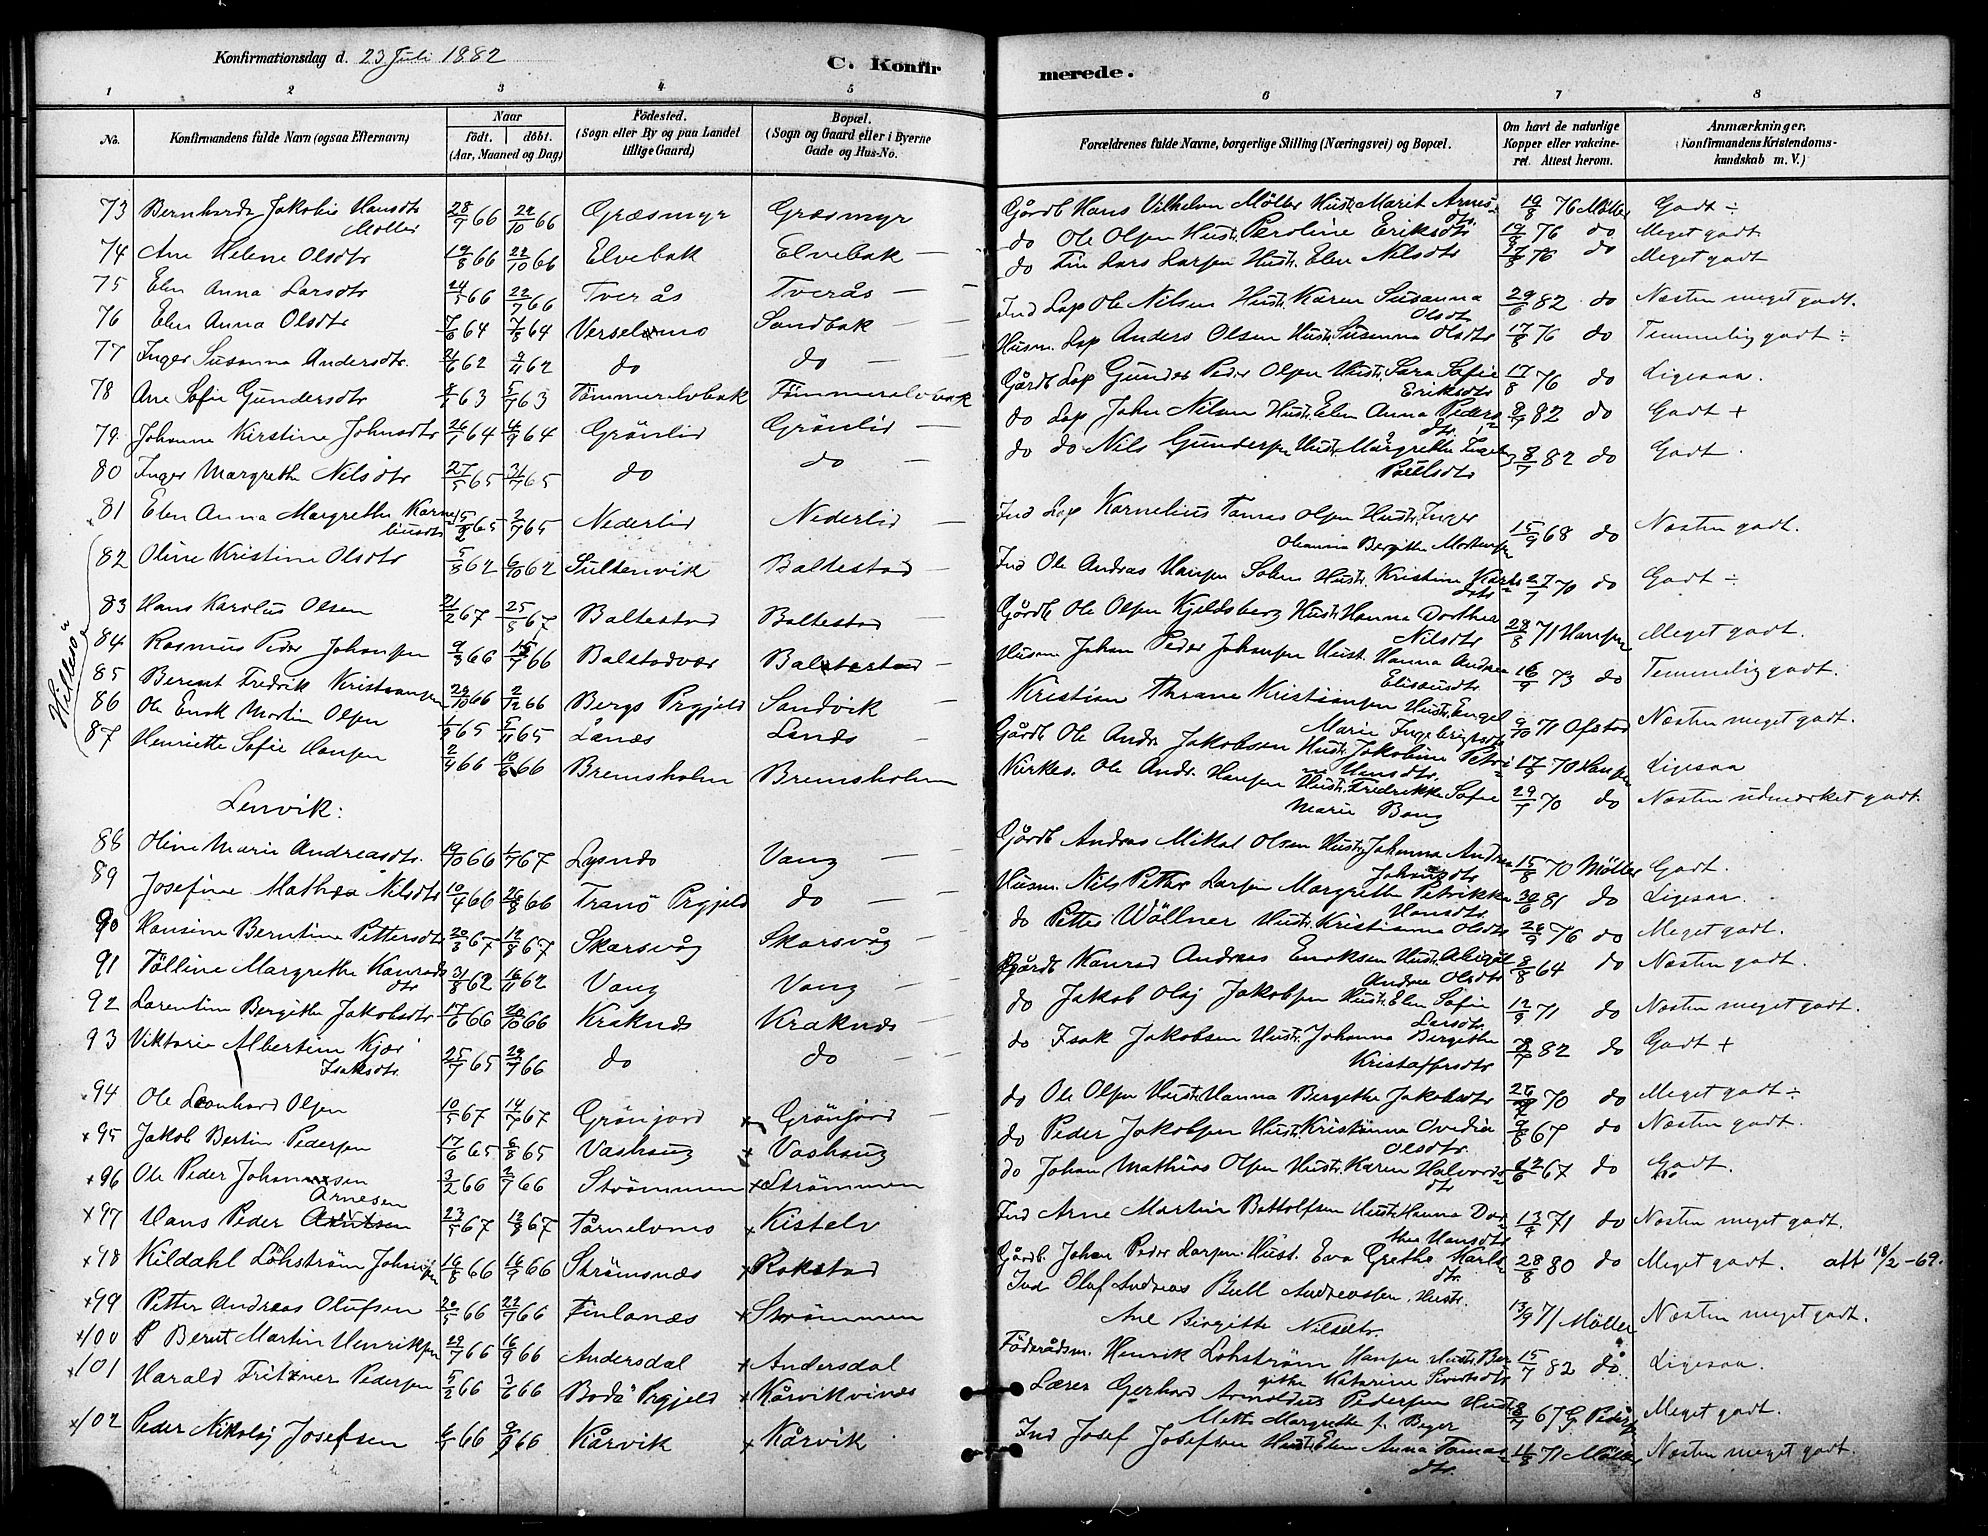 Konfirmationsdag d. 23 Juli 1882
C. Konfirmerede.
1 2 3 4 5 6 7 8
No. Konfirmandens fulde Navn (ogsaa Efternavn) Naar födt. döbt. (Aar, Maaned og Dag) Födested. (Sogn eller By og paa Landet tillige Gaard) Bopæl. (Sogn og Gaard eller i Byerne Gade og Hus-No. Forældrenes fulde Navne, borgerlige Stilling (Næringsvei) og Bopæl. Om havt de naturlige Kopper eller vakcineret. Attest herom. Anmærkninger. (Konfirmandens Kristendomskundskab m. V.)
73 Bernharda Jakobie Hansdtr Möller 28/7 66 22/10 66 Græsmyr Græsmyr Gårdb Hans Vilhelm Möller Hustr. Marit Arnsdtr 19/8 76 Möller Godt ÷
74 Ane Helene Olsdtr 19/8 66 22/10 66 Elvebak Elvebak — do Ole Olsen Hust. Peroline Eriksdtr 19/8 76 do Meget godt
75 Elen Anna Larsdtr 24/5 66 22/7 66 Tverås Tverås — do Fin Lars Larsen Hustr. Elen Nilsdtr 17/8 76 do Meget godt
76 Elen Anna Olsdtr 7/6 64 7/8 64 Verselvmo Sandbak — Ind Lap Ole Nilsen Hustr. Karen Susanna Olsdtr 29/6 82 do Næsten meget godt.
77 Inger Susanna Andersdtr. 21/6 62 9/11 62 do do — Husm. Lap Anders Olsen Hustr. Susanna Olsdtr 17/8 76 do Temmelig godt ÷
78 Ane Sofie Gundersdtr 8/1 63 5/7 63 Tömmerelvbak Tömmerelvbak Gårdb Lap Gunder Peder Olsen Hustr. Sara Sofie Eriksdtr 17/8 76 do Ligesaa.
79. Johanna Kirstine Johnsdtr 26/1 64 4/9 64 Grönlid Grönlid — do Lap John Nilsen Hustr. Elen Anna Pedersdtr. 8/7 82 do Godt +
80 Inger Margrethe Nilsdtr 27/5 65 31/7 65 do do — do do Nils Gundersen Hustr. Margrethe Inger Poulsdtr 8/7 82 do Godt.
81 Elen Anna Margrethe Karneliusdtr 5/2 65 2/7 65 Nederlid Nederlid — Ind Lap Kornelius Tomas Olsen Hustr. Inger Oleanna Bergitte Mortensen 15/9 68 do Næsten godt.
Hillesö
82 Oline Kristine Olsdtr 5/8 62 6/10 62 Sultenvik Baltestad — Ind Ole Andras Hansen Hustr. Kristine 27/7 70 do Godt ÷
83 Hans Karolus Olsen 21/2 67 25/5 67 Baltestad Baltestad — Gårdb Ole Olsen Kjeldsberg Hustr. Hanna Dorthea Nilsdtr 28/8 71 Hansen Meget godt.
84 Rasmus Peder Johansen 9/3 66 15/7 66 Balstadvær Balstestad — Husm Johan Peder Johansen Hust. Hanna Andrea Eliseusdtr 16/9 73 do Temmelig godt.
85 Berent Fredrik Kristiansen 29/10 66 2/12 66 Bergs Prgjeld Sandvik — Kristian Thrane Kristiansen Hustr. Engel Marie Ingebrigtsdtr 9/10 71 Ofstad Næsten meget godt.
86 Ole Enok Martin Olsen 1/9 65 5/11 65 Lånæs Lanæs — Gårdb Ole Andr. Jakobsen Hustr. Jakobine Petrine Hansdtr. 17/9 70 Hansen Ligesaa
87 Henriette Sofie Hansen 2/4 66 10/6 66 Bremsholm Bremsholm Kirkes. Ole Andr. Hansen Hustr. Fredrikke Sofie Marie Bang 29/7 70 do Næsten udmærket godt.
Lenvik:
88 Oline Marie Andreasdtr. 19/10 66 1/7 67 Lysnes Vang — Gårdb Andreas Mikal Olsen Hustr. Johanna Andrea Johansdtr 15/8 70 Möller Godt.
89 Josefine Mathea Nilsdtr 10/4 66 26/8 66 Tranö Prgjeld do — Husm. Nils Petter Larsen Margrethe Petrikke Hansdtr 30/6 81 do Ligesaa.
90 Hansine Berntine Pettersdtr 20/3 67 12/8 67 Skarsvåg Skarsvåg — do Petter Wöllner Hustr. Kristianna Olsdtr 26/9 76 do Meget godt.
91 Tölline Margrethe Konradsdtr 31/8 62 16/11 62 Vang Vang — Gårdb Konrad Andreas Eriksen Hustr. Abigal Andrea Olsdtr 8/8 64 do Næsten godt.
92 Larentine Bergithe Jakobsdtr 17/6 66 20/10 66 Kraknæs Kraknæs — do Jakob Olaj Jakobsen Hustr. Elen Sofie Larsdtr 12/9 71 do Næsten meget godt.
93 Viktoria Albertine Kjær Isaksdtr. 25/7 65 29/7 66 do do — do Isak Jakobsen Hustr. Johanna Bergitha Kristoffersdtr 8/7 82 do Godt +
94 Ole Leonhard Olsen 10/5 67 14/7 67 Grönjord Grönjord — do Ole Olsen Hustr. Hanna Bergethe Jakobsdtr 70 do Meget godt ÷
95 Jakob Bertin Pedersen 17/6 65 6/8 65 Vashaug Vashaug do Peder Jakobsen Hustr. Kristianna Ovedia Olsdtr. 9/8 67 do Næsten godt.
96 Ole Peder Johannesen 3/2 66 2/7 66 Strömmen Strömmen do Johan Mathias Olsen Hustr. Karen Halvorsdtr 67 do Godt.
97 Hans Peder Arnesen 23/5 67 12/8 67 Tårnelvmo Kistelv Ind Arne Martin Bottolfsen Hustr. Hanna Dorthea Hansdtr 13/9 71 do Næsten meget godt.
98 Kildahl Löhström Johansen 16/8 66 16/9 66 Strömsnæs Rokstad Gårdb. Johan Peder Larsen Hustr. Eva Grethe Karlsdtr. 28/8 80 do Meget godt. att 18/2-69.
99 Petter Andreas Olufsen 20/5 66 22/7 66 Finlanæs Strömmen Ind Oluf Andreas Bull Andreassen Hustr. Ane Birgitte Nilsdtr. 13/9 71 Möller Næsten meget godt.
100 P Bernt Martin Henriksen 29/7 66 16/9 66 Andersdal Andersdal Föderådsm. Henrik Löhström Hansen Hustr. Bergithe Katarine Sivertsdtr 15/7 82 do Ligesaa.
101 Harald Fritzner Pedersen 5/2 66 3/6 66 Bodö Prgjeld Kårvikvinds Lærer Gerhard Arnoldus Pedersen Hustr. Mette Margrethe f. Beyer 8/7 67 G Pedersen Meget godt.
102 Peder Nikolaj Josefsen 6/1 66 9/9 66 Kårvik Kårvik Ind Josef Josefsen Hustr. Elen Anna Tomasdtr. 11/8 71 Möller Næsten meget godt.